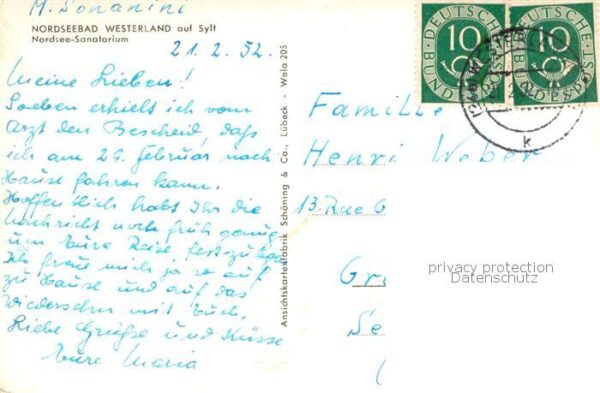 M. Sonanini
NORDSEEBAD WESTERLAND auf Sylt
Nordsee-Sanatorium
21.2.52.
Meine Lieben!
Soeben erhielt ich vom
Arzt den Bescheid, daß
ich am 29. Februar nach
Hause fahren kann.
Hoffentlich habt Ihr die
Nachricht noch früh genug
um Eure Reise festzulegen
Ich freue mich ja so auf
zu Hause und auf das
Wiedersehn mit Euch.
Liebe Grüße und Küsse
Eure Maria
Ansichtskartenfabrik Schöning & Co., Lübeck · Wela 205
10
DEUTSCHE
BUNDESPOST
10
DEUTSCHE
BUNDESPOST
k
Familie
Henri Weber
13. Rue G
Gr
Se
privacy protection
Datenschutz